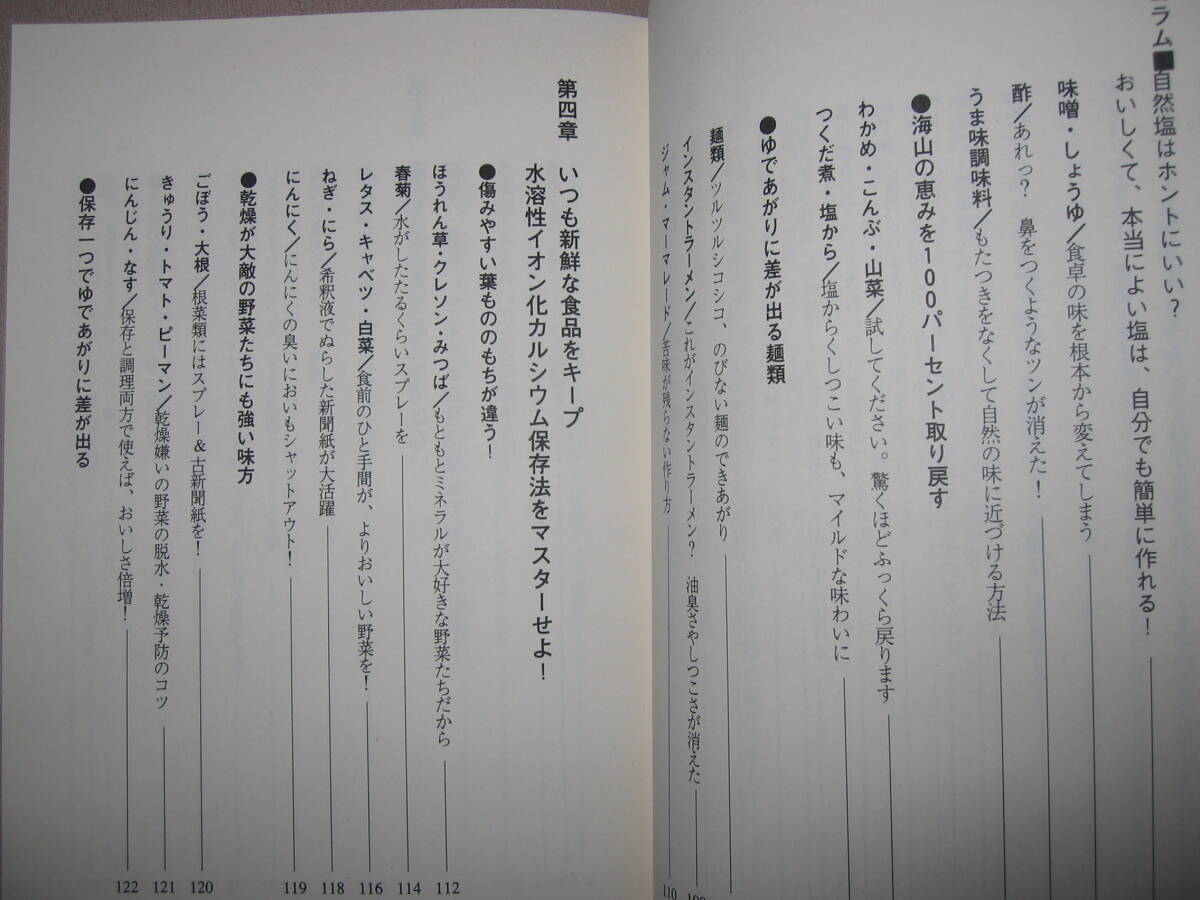 ラム■自然塩はホントにいい？
おいしくて、本当によい塩は、自分でも簡単に作れる！
味噌・しょうゆ/食卓の味を根本から変えてしまう
酢/あれっ？　鼻をつくようなツンが消えた！
うま味調味料/もたつきをなくして自然の味に近づける方法
●海山の恵みを100パーセント取り戻す
わかめ・こんぶ・山菜/試してください。驚くほどふっくら戻ります
つくだ煮・塩から/塩からくしつこい味も、マイルドな味わいに
●ゆであがりに差が出る麺類
麺類/ツルツルシコシコ、のびない麺のできあがり
インスタントラーメン/これがインスタントラーメン？　油臭さやしつこさが消えた
ジャム・マーマレード/苦味が残らない作り方 110
第四章　いつも新鮮な食品をキープ
水溶性イオン化カルシウム保存法をマスターせよ！
●傷みやすい葉もののもちが違う！
ほうれん草・クレソン・みつば/もともとミネラルが大好きな野菜たちだから 112
春菊/水がしたたるくらいスプレーを 114
レタス・キャベツ・白菜/食前のひと手間が、よりおいしい野菜を！ 116
ねぎ・にら/希釈液でぬらした新聞紙が大活躍 118
にんにく/にんにくの臭いにおいもシャットアウト！ 119
●乾燥が大敵の野菜たちにも強い味方
ごぼう・大根/根菜類にはスプレー＆古新聞紙を！ 120
きゅうり・トマト・ピーマン/乾燥嫌いの野菜の脱水・乾燥予防のコツ 121
にんじん・なす/保存と調理両方で使えば、おいしさ倍増！ 122
●保存一つでゆであがりに差が出る